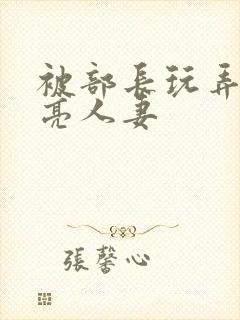 被部長玩弄
亮人妻
張馨心